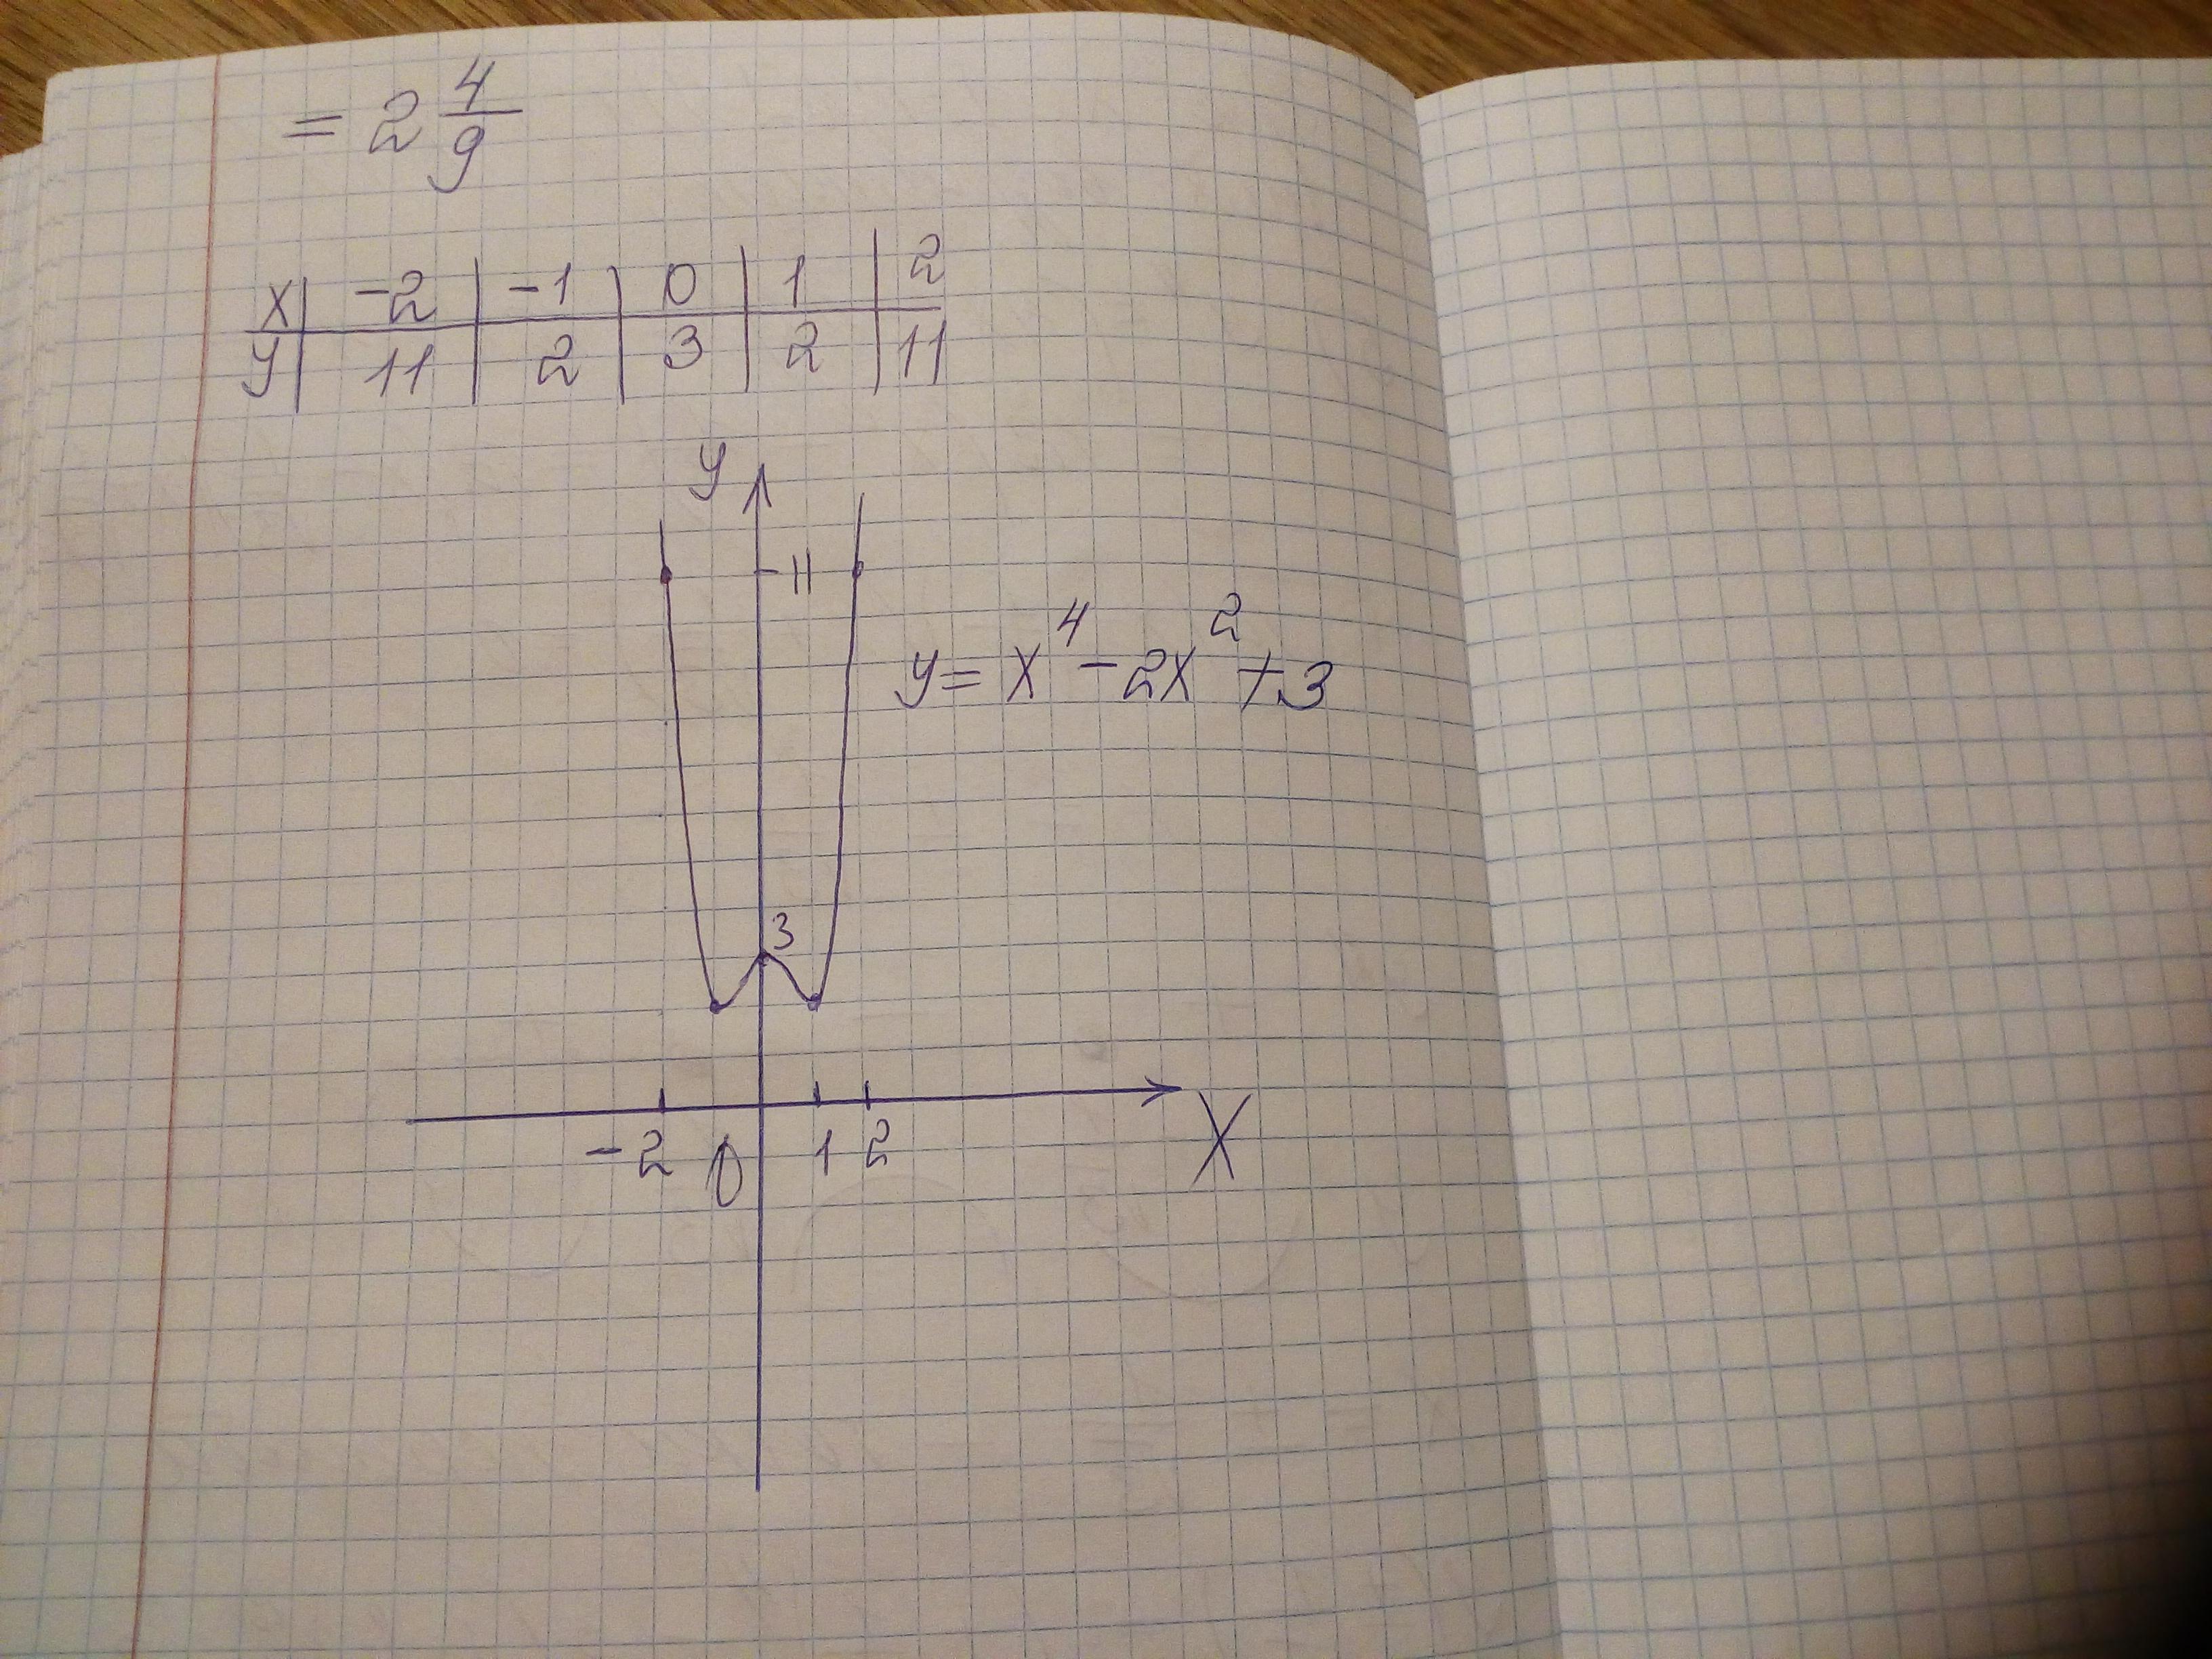 = 2 4/9
x | -2 | -1 | 0 | 1 | 2
y | 11 | 2 | 3 | 2 | 11
y
11
y = x⁴ - 2x² + 3
3
-2 0 1 2 X